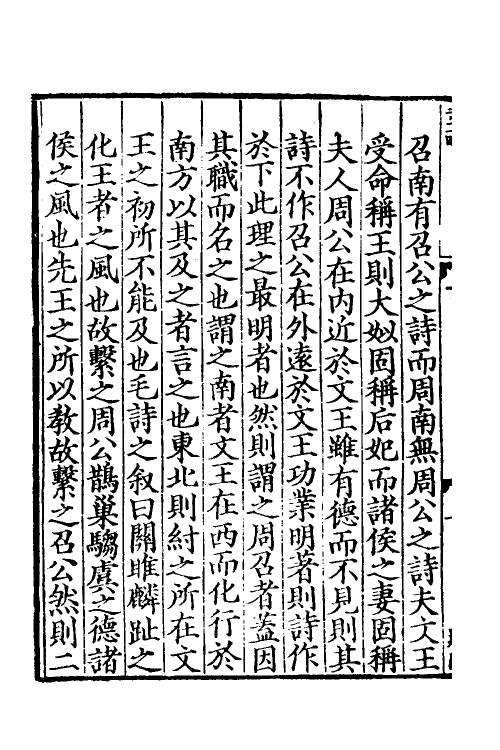 召南有召公之詩而周南無周公之詩夫文王
受命稱王則大姒固稱后妃而諸侯之妻固稱
夫人周公在内近於文王雖有德而不見則其
詩不作召公在外遠於文王功業明著則詩作
於下此理之最明者也然則謂之周召者蓋因
其職而名之也謂之南者文王在西而化行於
南方以其及之者言之也東北則紂之所在文
王之初所不能及也毛詩之叙曰關雎麟趾之
化王者之風也故繫之周公鵲巢騶虞之德諸
侯之風也先王之所以教故繫之召公然則二